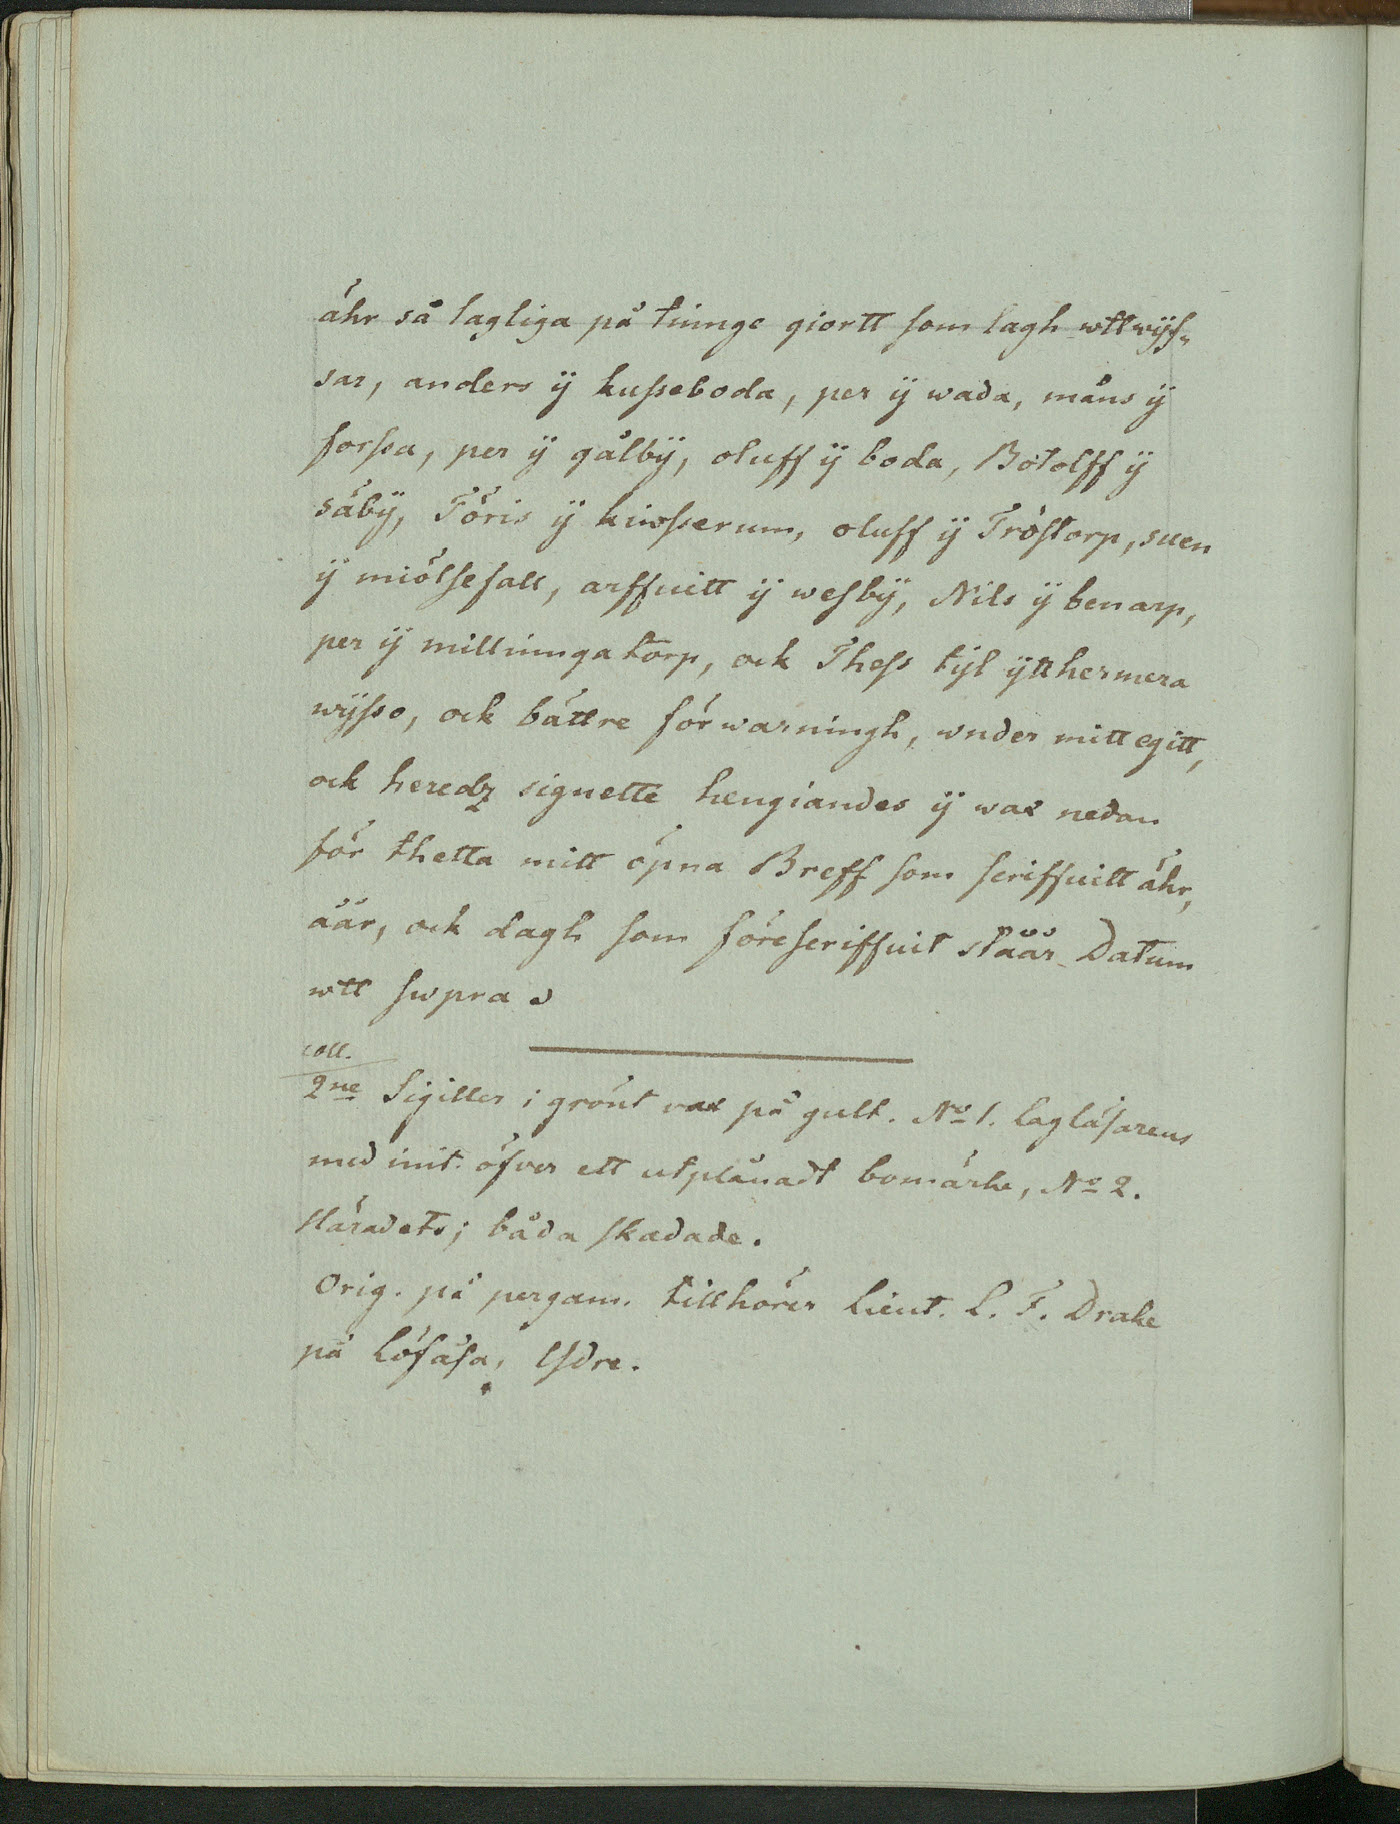 ähr så lagliga på tinnge giortt som lagh wttwÿs„
sar, anders ÿ kusseboda, per ÿ wada, måns ÿ
forssa, per ÿ gålbÿ, oluff ÿ boda, Botolff ÿ
säbÿ, Töris ÿ kiwsserum, oluff ÿ Tröstorp, suen
ÿ miölsefall, arffuitt ÿ wesbÿ, Nils ÿ benarp,
per ÿ millinngatorp, ock Thess tÿl ÿtthermera
wÿsso, ock bättre förwarningh, wnder mitt egitt,
ock heredz signette hengiandes ÿ wax nedan
för thetta mitt öpna Breff som scriffuitt ähr,
åår, ock dagh som förescriffuit ståår Datum
wtt swpra
coll.
2ne Sigiller i grönt vax på gult. No 1. Lagläsarens
med init. öfver ett utplånadt bomärke, No 2.
Häradets; båda skadade.
Orig. på pergam. tillhörer Lieut. L. F. Drake
på Löfåsa, Ydre.